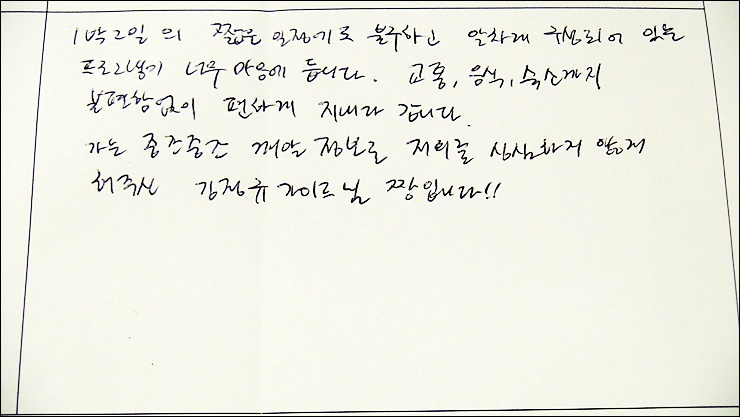 1박2일의 짧은 일정임에도 불구하고 알차게 구성되어 있는
프로그램이 너무 마음에 듭니다. 교통, 음식, 숙소까지
불편함없이 편하게 지내다 갑니다.
가는 중간중간 깨알 정보로 저희를 심심하지 않게
해주신 김정규 가이드님 짱입니다!!